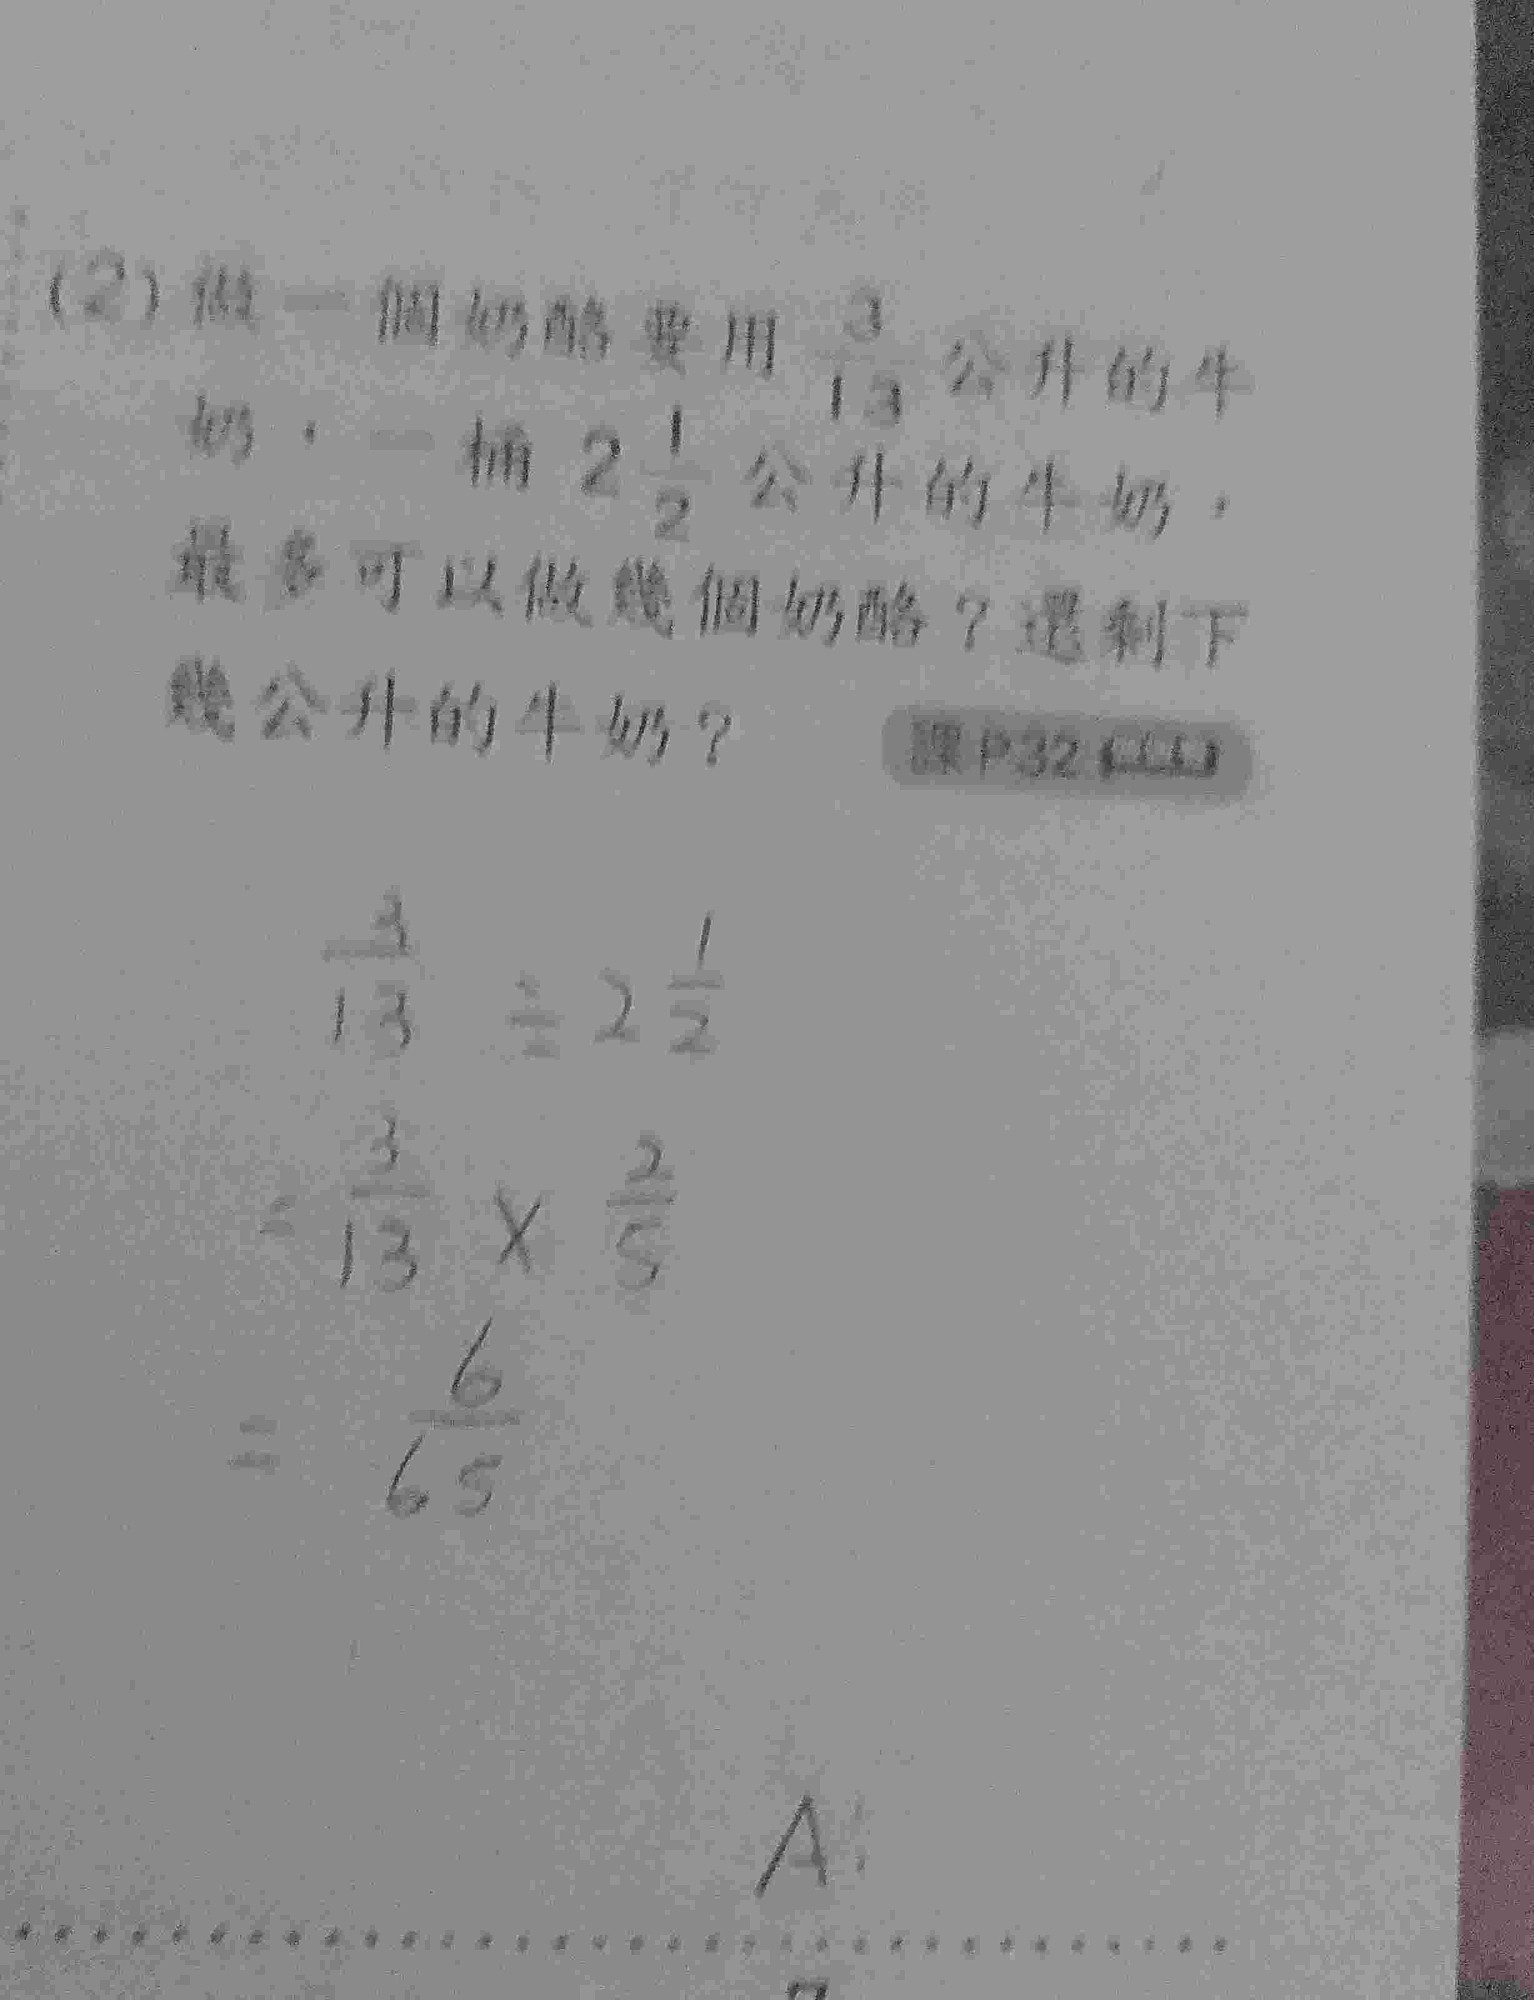 (2) 做一個奶酪要用 3/13 公升的牛
奶,一桶 2 1/2 公升的牛奶,
最多可以做幾個奶酪?還剩下
幾公升的牛奶?
課P32
3/13 ÷ 2 1/2
= 3/13 × 2/5
= 6/65
A: